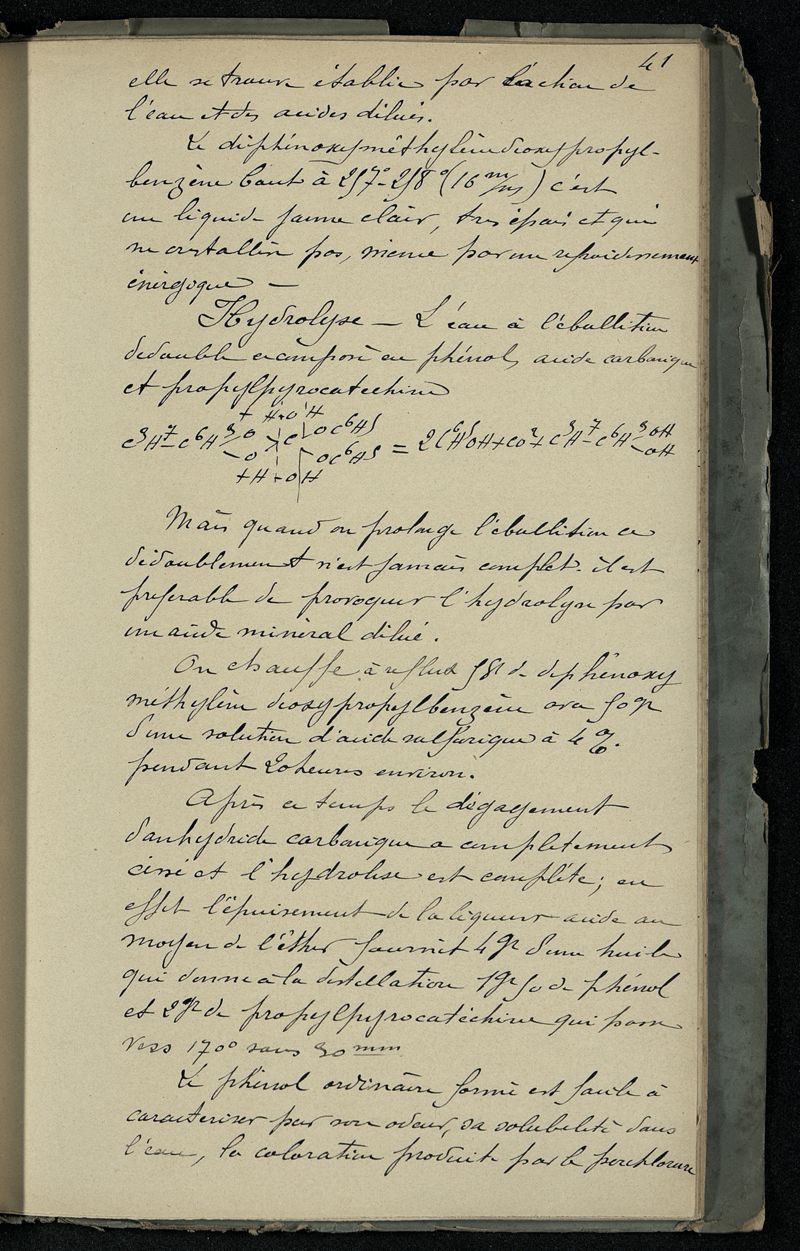 41
elle se trouve établie par l'action de
l'eau et des acides dilués.
Le diphénoxyméthylènedioxypropyl-
benzène bout à 257°-258° (16 m/m) c'est
un liquide jaune clair, très épais et qui
ne cristallise pas, même par un refroidissement
énergique —
Hydrolyse — L'eau à l'ébullition
dedouble ce composé en phénol, acide carbonique
et propylpyrocatéchine
+ H÷OH
C3H7-C6H3 O C OC6H5 = 2C6H5OH+CO2+C3H7-C6H3 OH
O OC6H5 OH
+H÷OH
Mais quand on prolonge l'ébullition ce
dédoublement n'est jamais complet. il est
preferable de provoquer l'hydrolyse par
un acide minéral dilué.
On chauffe à reflux 5gr de diphénoxy
méthylène dioxypropylbenzène avec 50gr
d'une solution d'acide sulfurique à 4 %
pendant 20 heures environ.
Après ce temps le dégagement
d'anhydride carbonique a complètement
cessé et l'hydrolise est complète; en
effet l'épuisement de la liqueur acide au
moyen de l'éther fournit 4gr d'une huile
qui donne à la distellation 1gr 50 de phénol
et 2gr de propylpyrocatéchine qui passe
vers 170° sous 30 mm
Le phénol ordinaire formé est facile à
caracteriser par son odeur, sa solubilité dans
l'eau, la coloration produite par le perchlorure